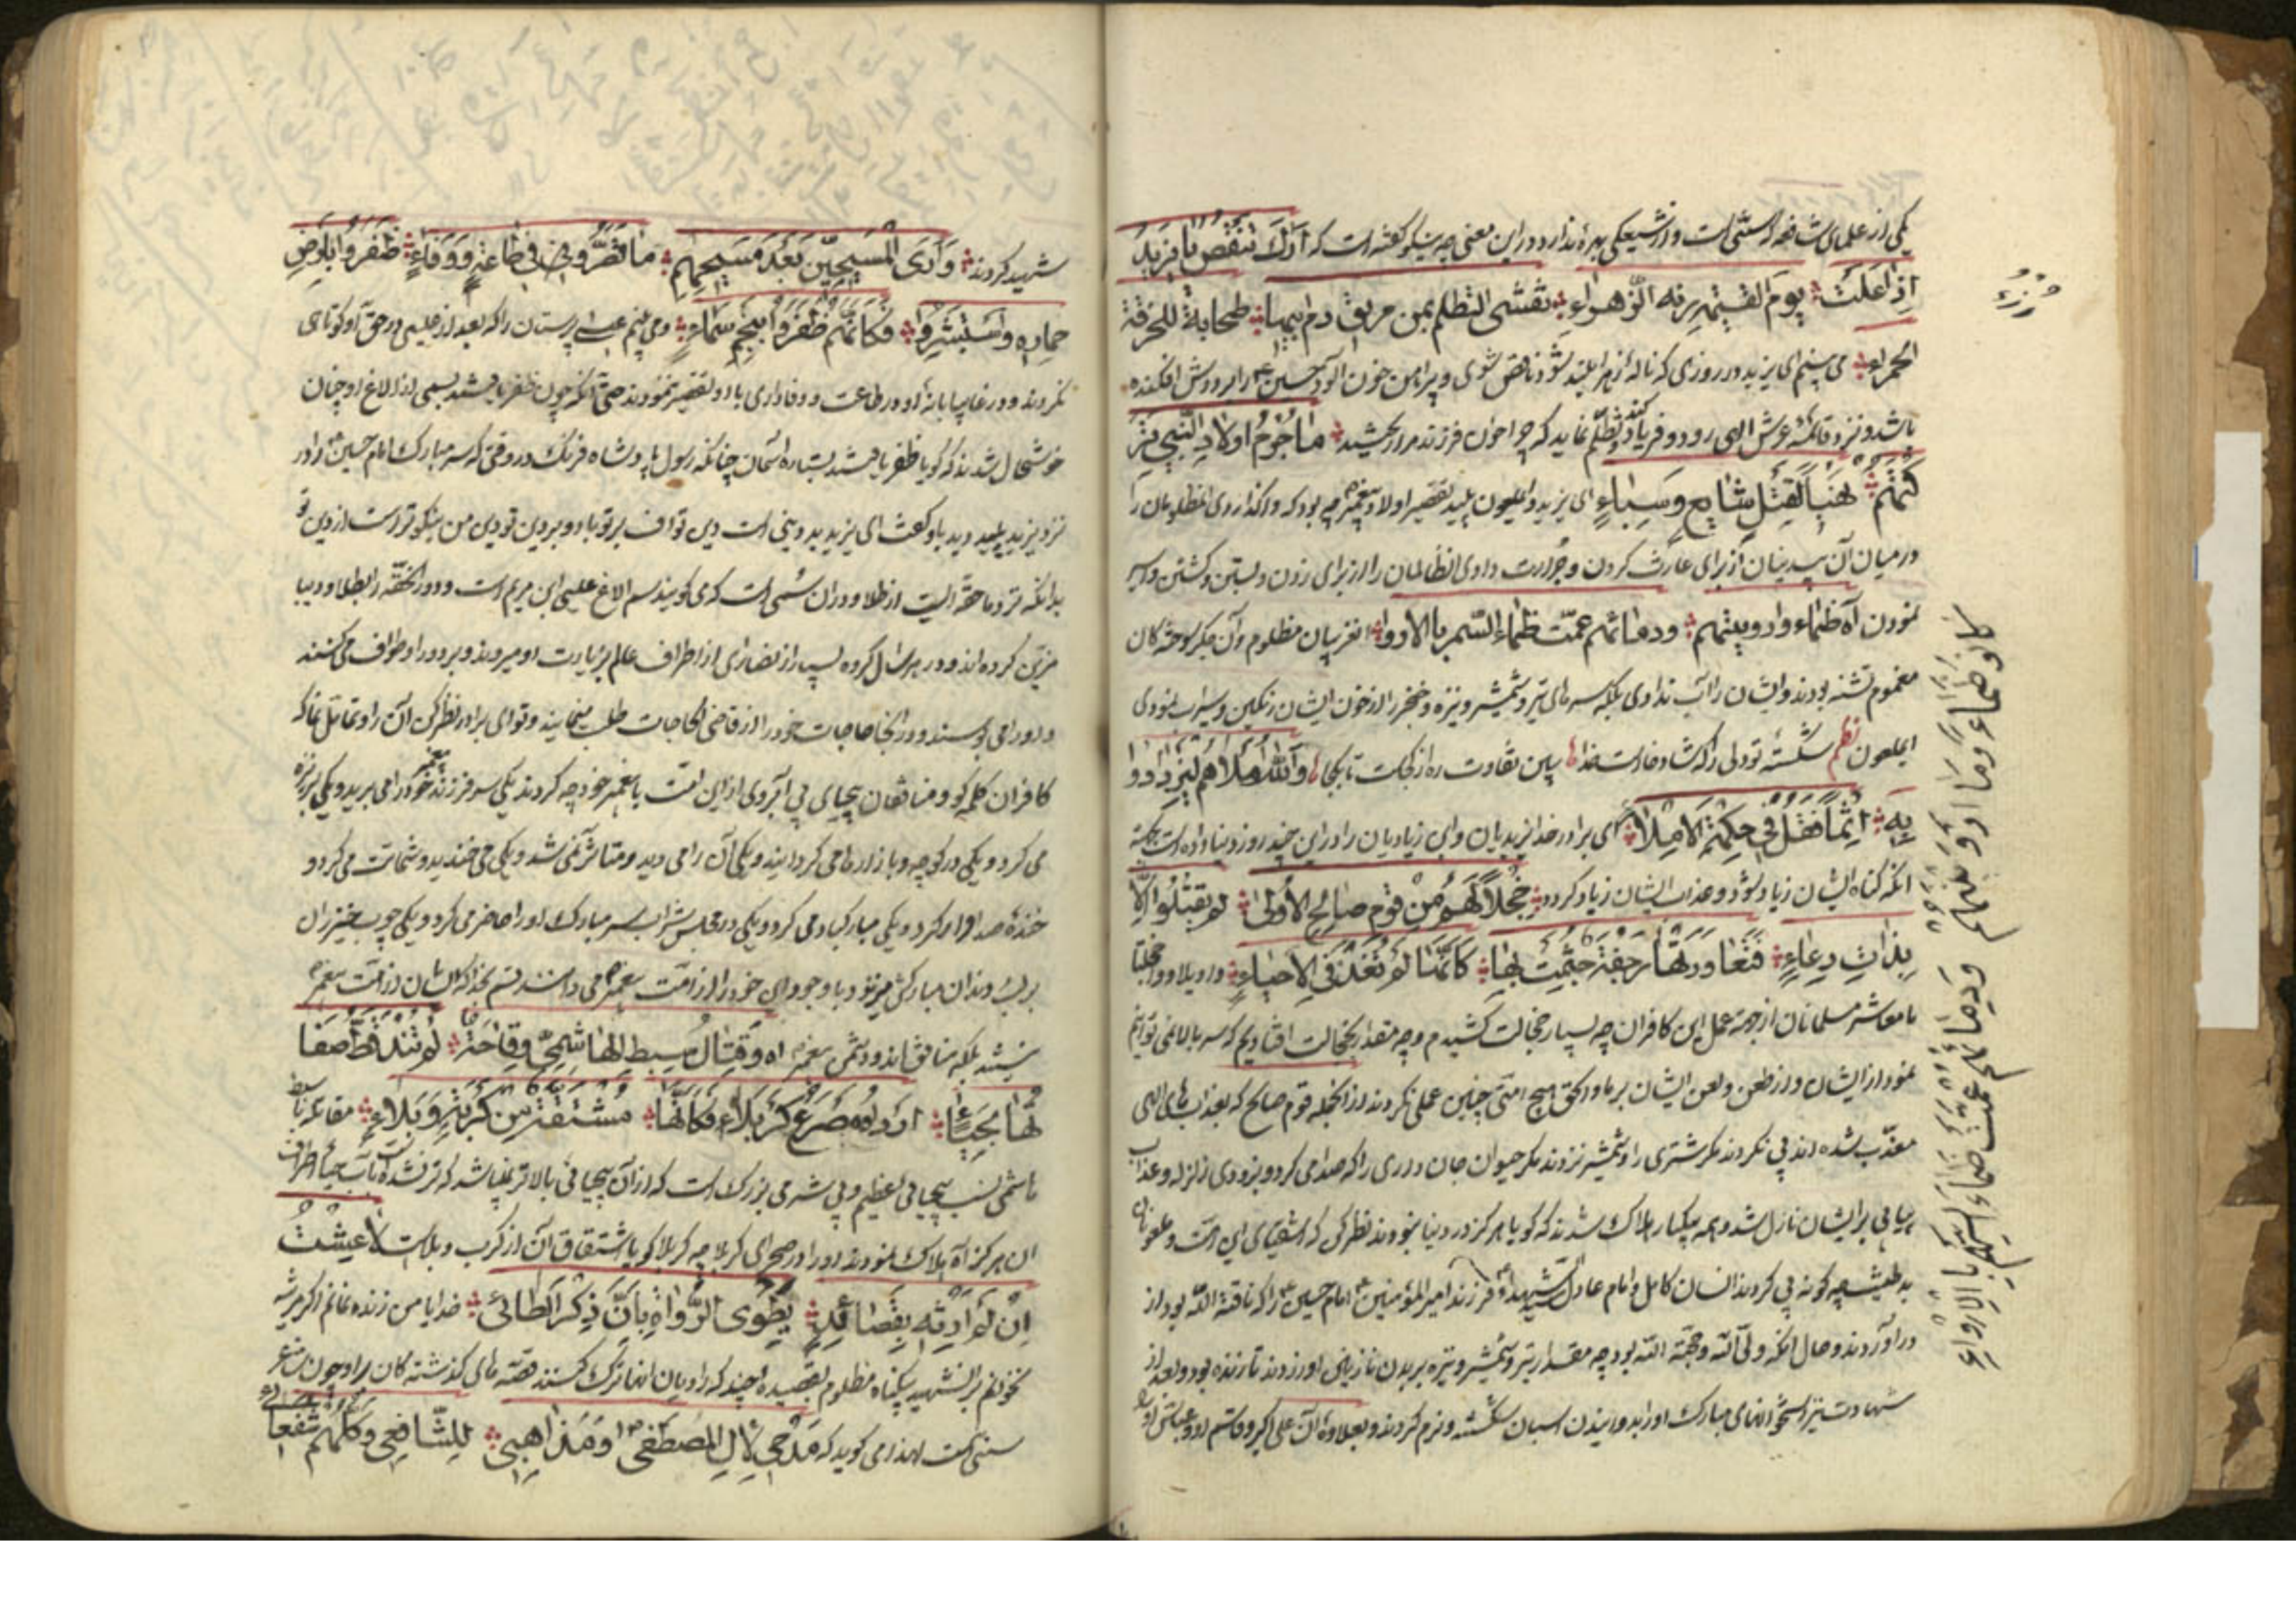 یکی از علمای شافعیه که سنی است و از شیعیگی بهره ندارد در این معنی چه نیکو گفته است که اراک تنقص یا یزید
اذا علت یوم القیمة رنة الزهراء تفشی التظلم من حریق دم ابیها
الحمراء می بینم ای یزید در روزی که ناله زهرا بلند شود ناقص شوی و پیراهن خون آلود حسین را بر دوش افکنده
باشد و نزد قائمه عرش الهی رود و فریاد کند و تظلم نماید که چرا خون فرزندم را ریختید ما جرم اولاد النبی
کنتم نهبا لقتل شایع و سباء ای یزید و ای ملعون پلید تقصیر اولاد پیغمبر چه بود که واگذاردی آن مظلومان را
در میان آن بیدینان از برای غارت کردن و جرأت دادی آن ظالمان را از برای زدن و بستن و کشتن و اسیر
نمودن آه ظماء و اروویتهم و دمائهم عمت ظماء السمر بالاروا آن غریبان مظلوم و آن جگر سوختگان
مغموم تشنه بودند و ایشان را آب ندادی بلکه سرهای تیر و شمشیر و نیزه و خنجر را از خون ایشان رنگین و سیراب نمودی
ای ملعون نظم شکسته تو دلی را که شاد خداست ببین تفاوت ره از کجاست تا بکجا والله املاهم لیزدادوا
به اثما فقل فی حکمة الاملاء ای برادر خدا یزیدیان و ابن زیادیان را در این چند روز دنیا داده است بجهة
آنکه گناه ایشان زیاد شود و عذاب ایشان زیاد گردد خجلا لهم من قوم صالح الاولی لم یقتلوا الا
بذات رغاء فتعاورتها رجفة جثمت بها کاننا لم تغد فی الاحیاء واویلا و وا خجلتا
یا معاشر مسلمانان از جهة عمل این کافران چه بسیار خجالت کشیدم و چه مقدار بخجالت افتادیم که سر بالا نمی توانیم
نمود از ایشان و از طعن و لعن ایشان بر ما و الحق هیچ امتی چنین عملی نکردند از آنجمله قوم صالح که بعذاب های الهی
معذب شده اند پی نکردند مگر شتری را و شمشیر نزدند مگر حیوان جان داری را که صدا می کرد و بزودی زلزله و عذاب
پیاپی بر ایشان نازل شد و همه بیکبار هلاک شدند که گویا هرگز در دنیا نبودند نظر کن که اشقیای این امت و ملعونان
بد طینت چه گونه پی کردند انسان کامل و امام عادل سید شهدا و فرزند امیر المؤمنین امام حسین را که ناقة الله بود از
در آوردند و حال آنکه ولی الله و حجة الله بود چه مقدار تیر و شمشیر و نیزه بر بدن نازنین او زدند تا زنده بود و بعد از
شهادت نیز استخوانهای مبارک او را بدوانیدن اسبان شکسته و نرم کردند و بعلاوه آن علی اکبر و قاسم او و عباس او را
کانو ظماء وما ارو ویتهم ودمائهم عمت ظماء السمر بالارواء
شهید کردند واری المسیحیین بعد مسیحهم ما قصروا فی طاعة ووفاء ظفروا بارض
حماره واستبشروا فکانهم ظفروا بنجم سماء و می بینم عیسی پرستان را که بعد از عیسی در حق او کوتاهی
نکردند و در غایبانه او در طاعت و وفاداری با او تقصیر ننمودند حتی آنکه چون ظفر یافتند بسمی از الاغ او چنان
خوشحال شدند که گویا ظفر یافتند بستاره آسمان چنانکه رسول پادشاه فرنگ در وقتی که سر مبارک امام حسین را در
نزد یزید پلید دید باو گفت ای یزید بد دینی است دین تو اف بر تو باد و بر دین تو دین من نیکوتر است از دین تو
بدانکه نزد ما حقه ایست از طلا و در آن سمی است که می گویند سم الاغ عیسی ابن مریم است و دور آن حقه را بطلا و دیبا
مزین کرده اند و در هر سال گروه بسیار از نصاری از اطراف عالم بزیارت او میروند و بر دور او طواف می کنند
و او را می بوسند و در آنجا حاجات خود را از قاضی الحاجات طلب مینمایند و تو ای برادر نظر کن آن را و تماثل نما که
کافران کلمه گو و منافقان بیحیای بی آبروی از این امت با پیغمبر خود چه کردند یکی سر فرزند پیغمبر خود را می برید و یکی بر نیزه
می کرد و یکی در کوچه و بازارها می گردانید و یکی آن را می دید و متأثر نمی شد و یکی می خندید و شماتت می کرد و
خنده صدا دار می کرد و یکی مبارکباد می کرد و یکی در مجلس شراب سر مبارک او را حاضر می کرد و یکی چوب خیزران
بر لب و دندان مبارکش میزد و با وجود این خود را از امت پیغمبر می دانستند قسم بخدا که ایشان از امت پیغمبر
نیستند بلکه منافق اند و دشمن پیغمبر آه وقتال سبط الهاشمی وقاحة لم تند قط صفا
لها بحیاء او اوه صرع کربلاء فکانها مشتقة من کربة وبلاء مقاتله با سبط
هاشمی نسب بیحیائی عظیم و بی شرمی بزرگ است که از آن بیحیائی بالاتر نمیباشد که تر نشده است بآب حیا اطراف
آن هرگز آه هلاک نمودند او را در صحرای کربلا چه کربلا گویا اشتقاق آن از کرب و بلاست لاعشت
ان لم ارثه بقصائد یطوی الرواة بان ذکر الطائی خدایا من زنده نمانم اگر مرثیه
نخوانم بر آن شهید بیگناه مظلوم بقصیده چند که راویان آنها ترک کنند قصه های گذشته گان را و چون شاعر
سنی است لهذا می گوید که مدحی لآل المصطفی ومذاهبی للشافعی وکلهم شفعائی